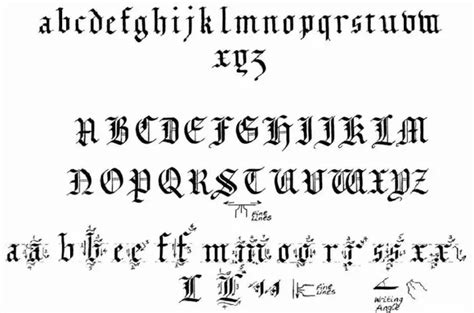 abcdefghijklmnopqrstuvw
xyz
ABCDEFGHIJKLM
NOPQRSTUVWXYZ
fine lines
aabbeeffmmoorrssxx
LL
fine lines
Writing Angle